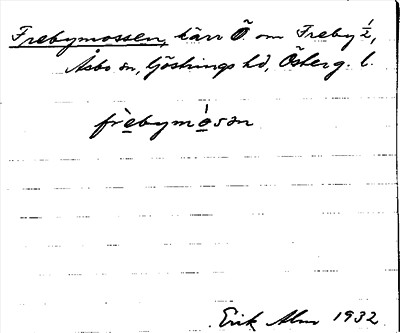 Frebymossen, kärr Ö. om Freby ½,
Åsbo sn, Göstrings hd, Österg. l.
frèbymòsən
Erik Alm 1932